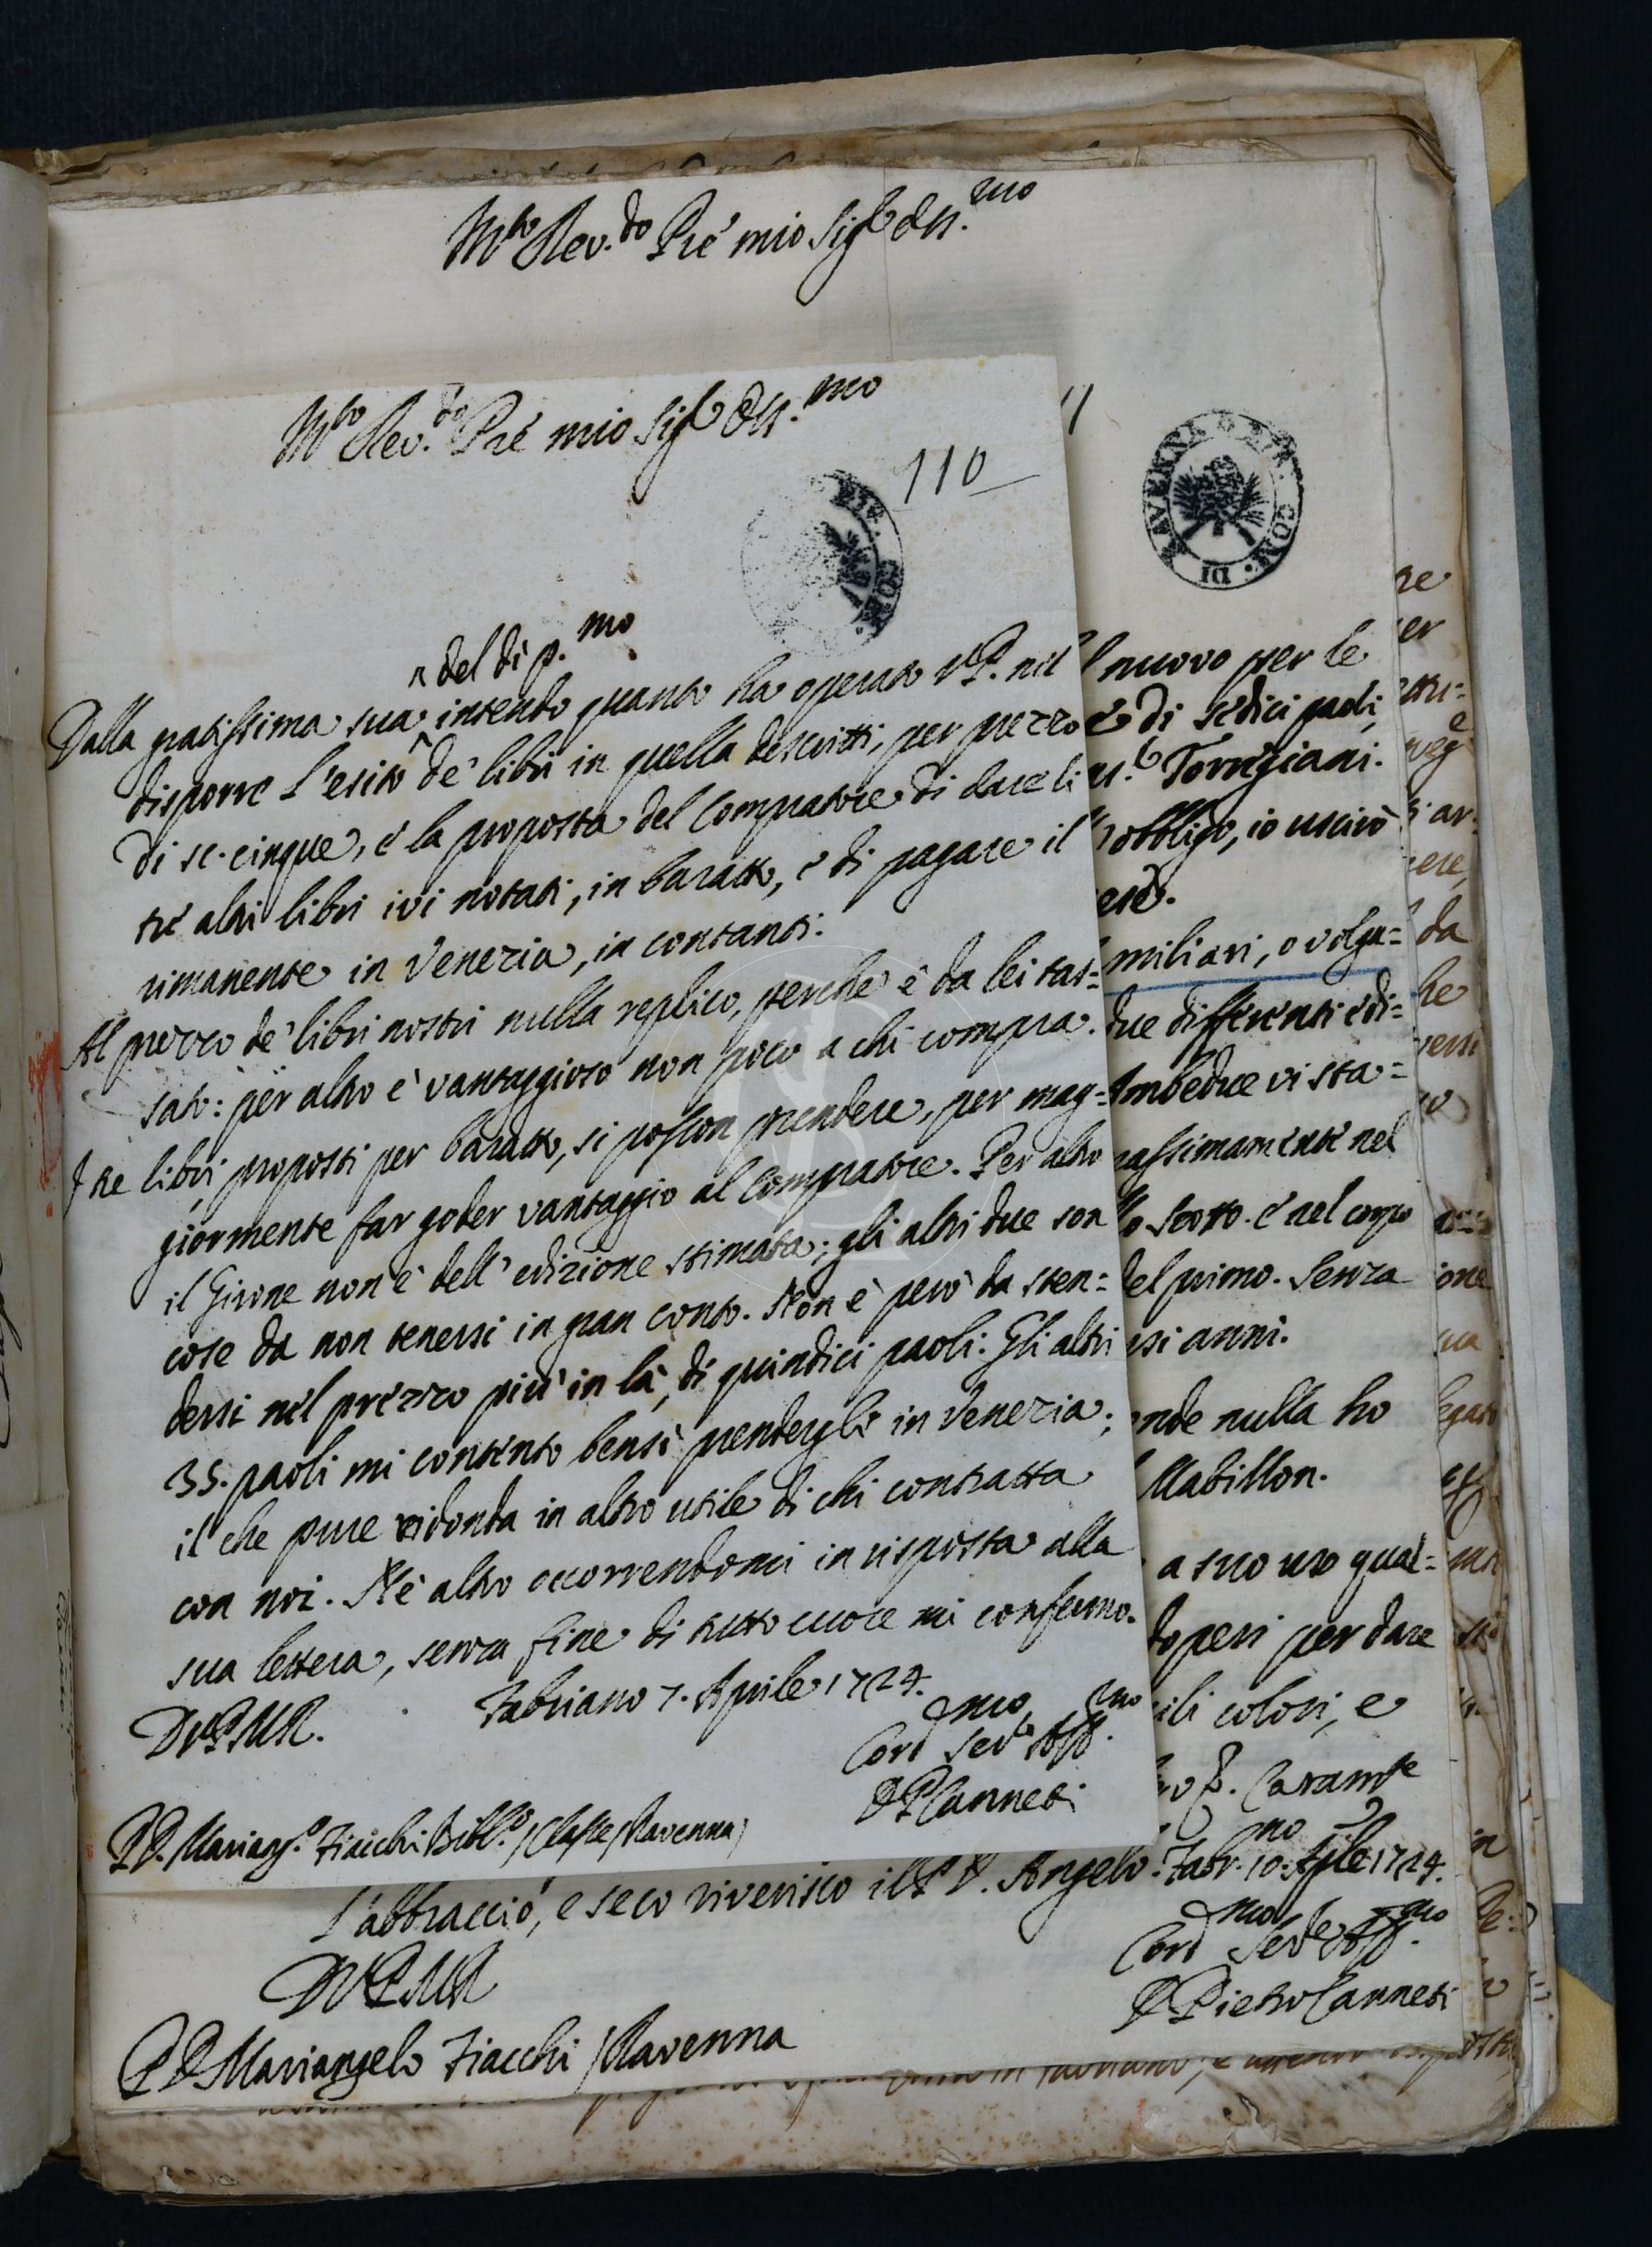 M.to Rev.do P're mio Sig.r Oss.mo
M.to Rev.do P're mio Sig.r Oss.mo
110
BIB. COM.
CLASSENSE BIB. COM. DI RAVENNA
^ del dì p.mo
Dalla gratissima sua ^ intendo quanto ha operato V.P. nel
disporre l'esito de' libri in quella descritti, per prezzo
di sc. cinque, e la proposta del Compratore di dare li
tre altri libri ivi notati, in baratto, e di pagare il
rimanente in Venezia, in contanti.
Al prezzo de' libri nostri nulla replico, perche è da lei tas=
sato: per altro è vantaggioso non poco a chi compra.
I tre libri proposti per baratto, si posson prendere, per mag=
giormente far goder vantaggio al Compratore. Per altro
il Girone non è dell'edizione stimata; gli altri due son
cose da non tenersi in gran conto. Non è però da sten=
dersi nel prezzo più in là, di quindici paoli. Gli altri
35. paoli mi contento bensì prendergli in Venezia;
il che pure ridonda in altro utile di chi contratta
con noi. Nè altro occorrendomi in risposta alla
sua lettera, senza fine di tutto cuore mi confermo.
DVPMR. Fabriano 7. Aprile 1724.
Cord.mo Ser.e Aff.mo
D P Canneti
P.D. Mariang.o Fiacchi Bibl.o / Classe / Ravenna /
l nuovo per le
e di sedici paoli,
Torrigiani.
obbligo, io uscirò
miliari, o volga=
due differenti edi=
Ambedue vi sta=
assimamente nel
lo Scotto. e nel corpo
del primo. Senza
si anni.
nde nulla ho
Mabillon.
a suo uso qual=
doperi per dare
ili colori, e
L'abbraccio, e seco riverisco il P. D. Angelo. Fabr. 10. Aprile 1724.
DVPMR
Cord.mo Ser.e Aff.mo
D Pietro Canneti
P D Mariangelo Fiacchi / Ravenna